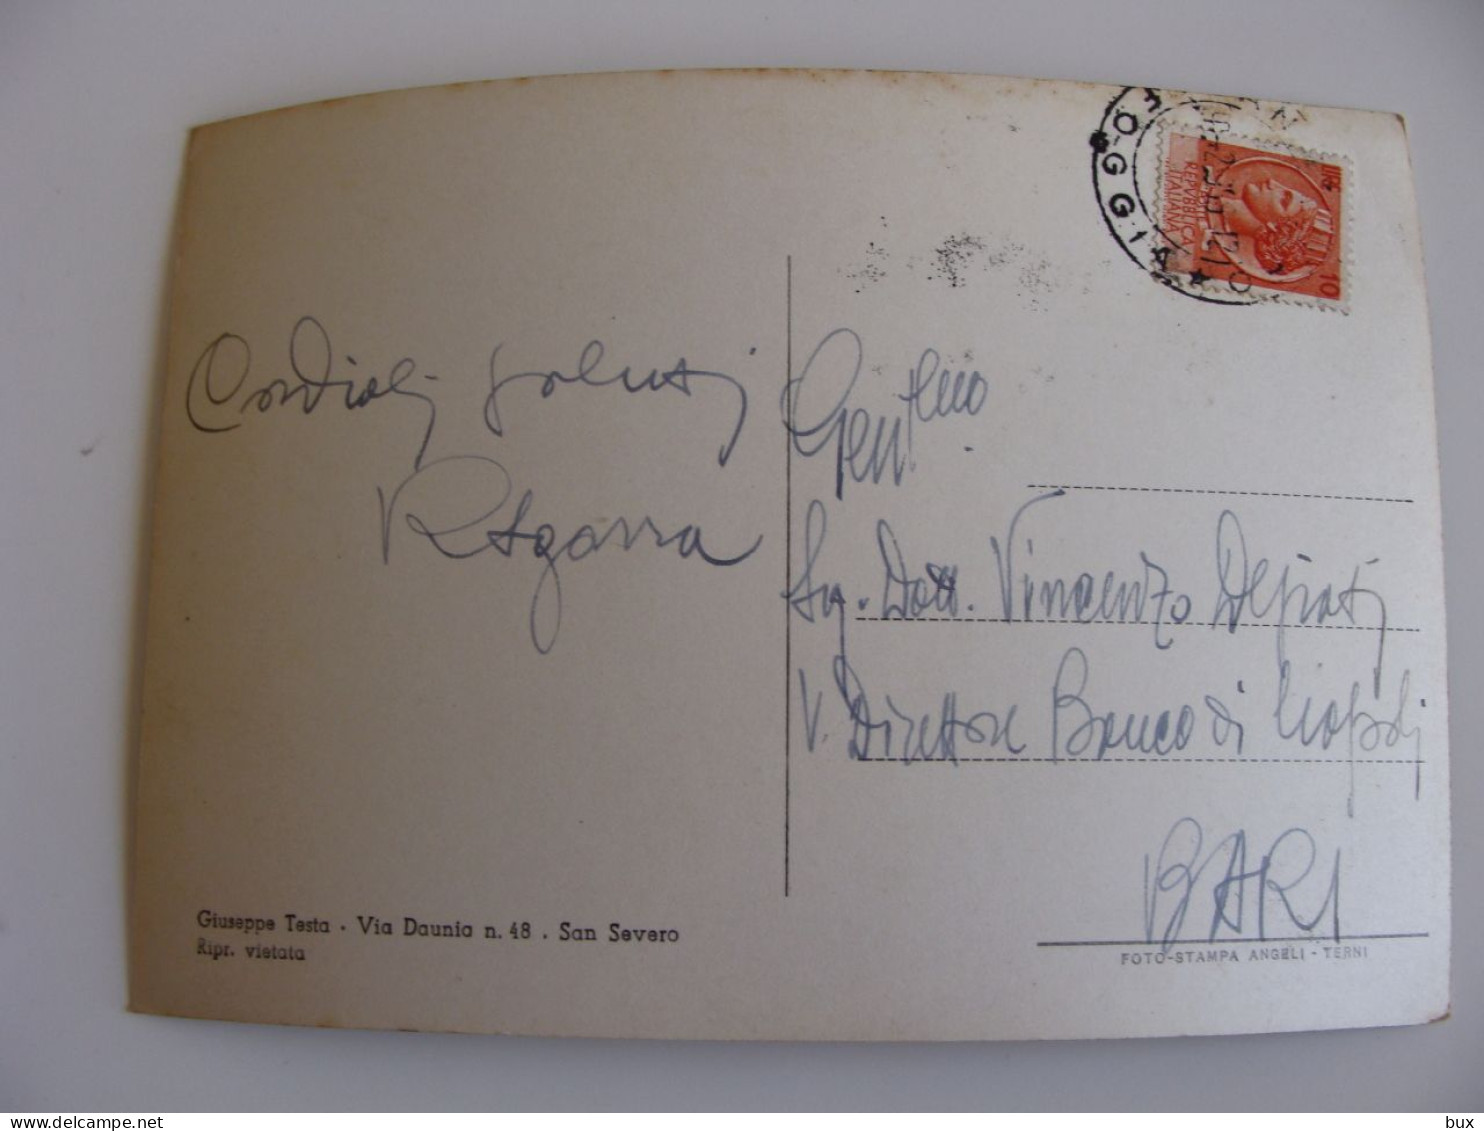 Cordiali saluti
Gent.mo
Sig. Dott. Vincenzo
V. Direttore Banco di Napoli
BARI
Giuseppe Testa . Via Daunia n. 48 . San Severo
Ripr. vietata
FOTO-STAMPA ANGELI - TERNI
FOGGIA
LIRE
10
REPVBBLICA
ITALIANA
bux